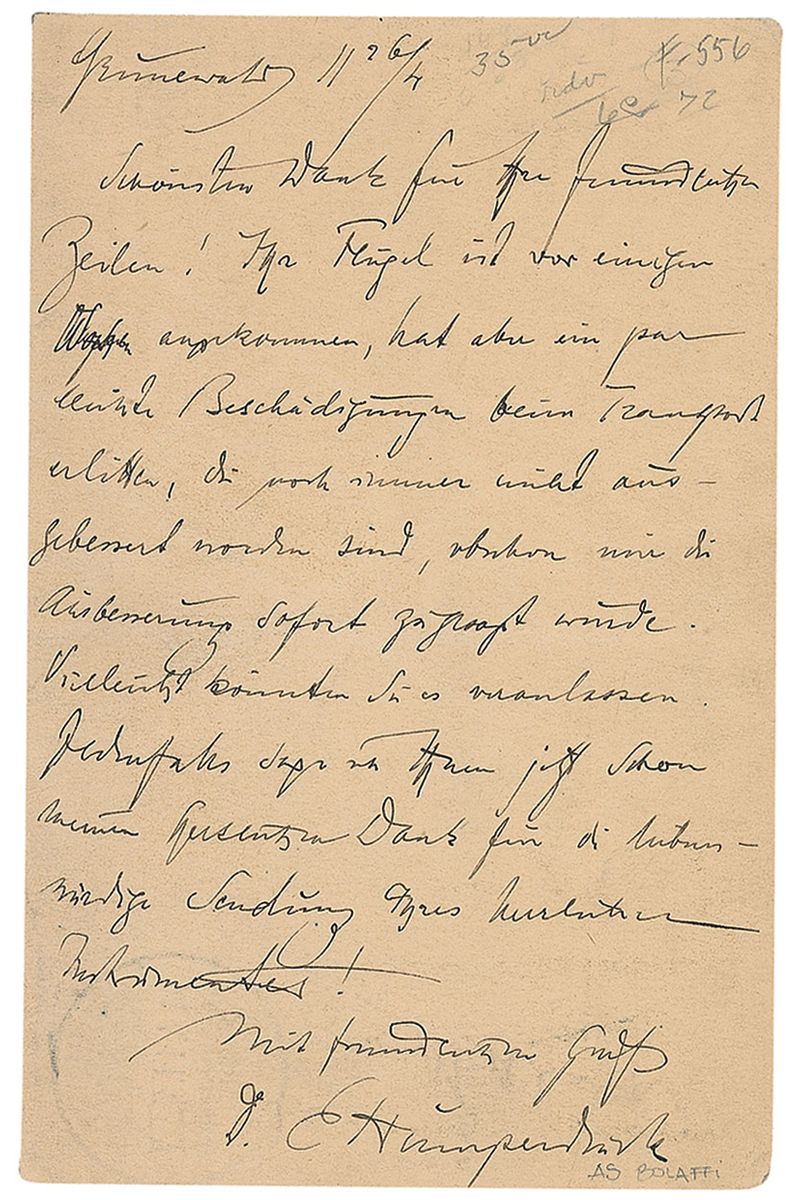 Grunewald 11 26/4
35
F. 556
72
Schönsten Dank für Ihre freundlichen
Zeilen! Ihr Flügel ist vor einigen
Wochen angekommen, hat aber ein par
leichte Beschädigungen beim Transport
erlitten, die noch immer nicht aus-
gebessert worden sind, obschon mir die
Ausbesserung sofort zugesagt wurde.
Vielleicht könnten Sie es veranlassen.
Jedenfalls sage ich Ihnen jetzt schon
meinen herzlichen Dank für die liebens-
würdige Sendung Ihres herrlichen
Instrumentes!
Mit freundlichem Gruß
Ihr
E Humperdinck
AS BOLAFFI